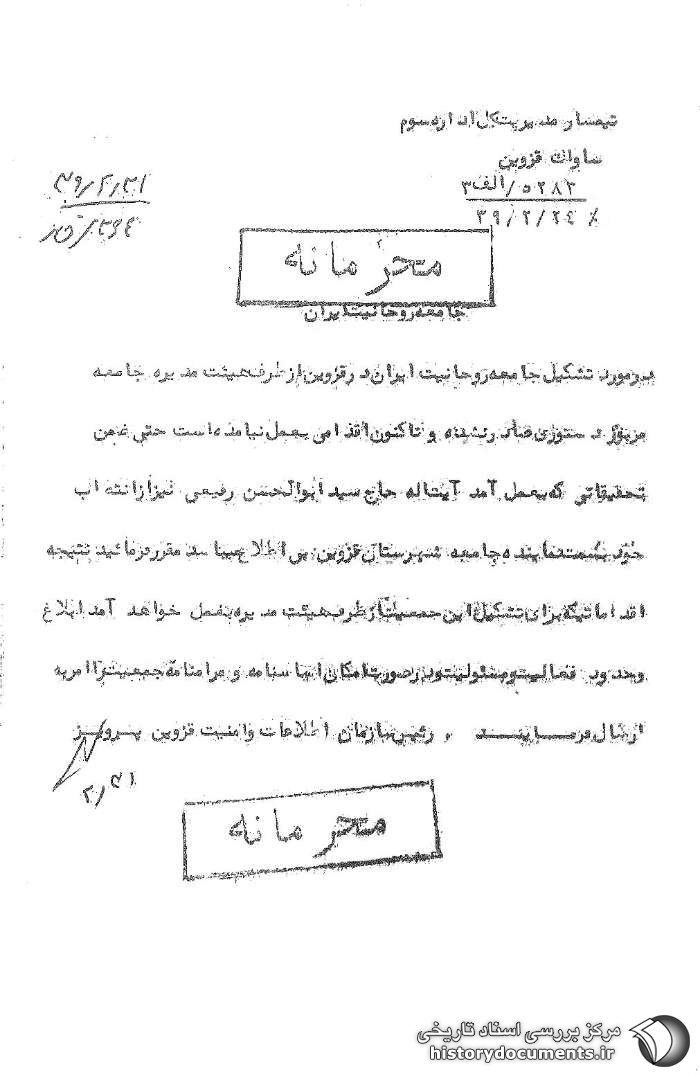 تیمسار مدیریت کل اداره سوم
ساواک قزوین
۵۲۸۳/الف۳
۳۹/۲/۲۴
۳۹/۲/۳۱
محرمانه
جامعه روحانیت ایران
در مورد تشکیل جامعه روحانیت ایران در قزوین از طرف هیئت مدیره جامعه
مزبور دستوری صادر نشده و تاکنون اقدامی بعمل نیامده است حتی ضمن
تحقیقاتی که بعمل آمد آیت اله حاج سید ابوالحسن رفیعی نیز از انتخاب
خود بسمت نماینده جامعه شهرستان قزوین بی اطلاع میباشد مقرر فرمائید نتیجه
اقداماتیکه برای تشکیل این جمعیت از طرف هیئت مدیره بعمل خواهد آمد ابلاغ
وحدود فعالیت و مسئولیت و در صورت امکان اساسنامه و مرامنامه جمعیت را امر به
ارسال فرمایند . رئیس سازمان اطلاعات و امنیت قزوین پرویز
۲/۳۱
محرمانه
مرکز بررسی اسناد تاریخی
historydocuments.ir